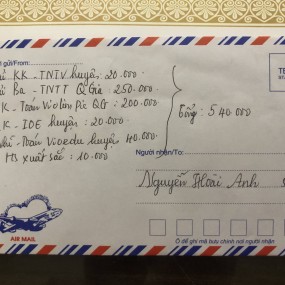 gửi/From:
KK - TNTV huyện: 20.000
Ba - TNTT QGia: 250.000
K - Toán Violim Pic QG: 200.000
K - IOE huyện: 20.000
Toán Vioedu huyện 40.000
HS xuất sắc: 10.000
Tổng: 540.000
Người nhận/To:
Nguyễn Hoài Anh
AIR MAIL
Ô để ghi mã bưu chính nơi người nhận